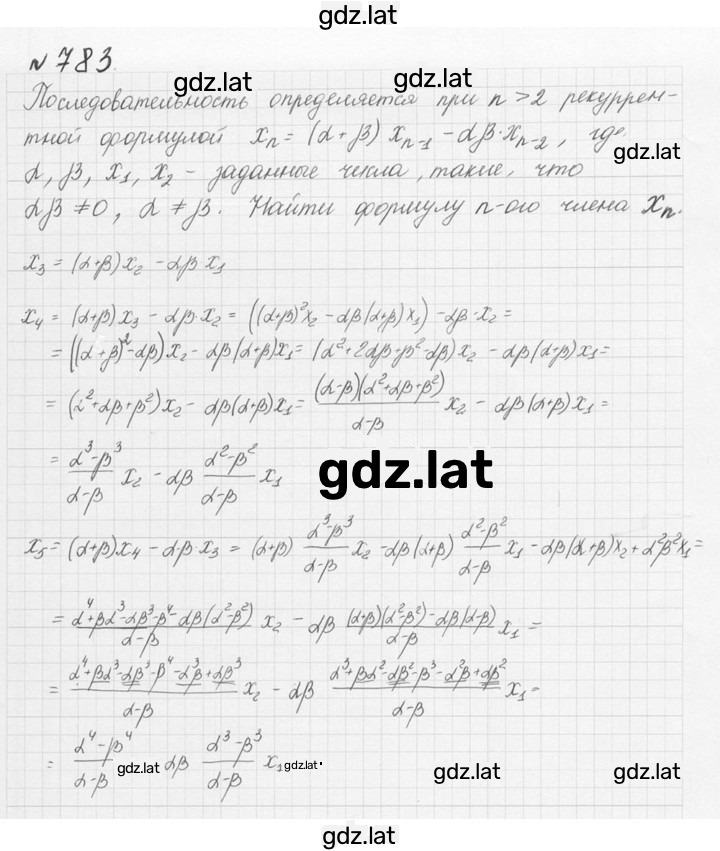 gdz.lat
№ 783.
gdz.lat gdz.lat
Последовательность определяется при n > 2 рекуррен-
тной формулой xₙ = (α+β) xₙ₋₁ - αβ·xₙ₋₂, где
gdz.lat
α, β, x₁, x₂ - заданные числа, такие, что
αβ ≠ 0, α ≠ β. Найти формулу n-ого члена xₙ.
x₃ = (α+β)x₂ - αβ·x₁
x₄ = (α+β)x₃ - αβ·x₂ = ((α+β)²x₂ - αβ(α+β)x₁) - αβ·x₂ =
= ((α+β)² - αβ)x₂ - αβ(α+β)x₁ = (α²+2αβ+β²-αβ)x₂ - αβ(α+β)x₁ =
= (α²+αβ+β²)x₂ - αβ(α+β)x₁ = (α-β)(α²+αβ+β²)/(α-β) x₂ - αβ(α+β)x₁ =
= (α³-β³)/(α-β) x₂ - αβ (α²-β²)/(α-β) x₁
gdz.lat
x₅ = (α+β)x₄ - α·β·x₃ = (α+β) (α³-β³)/(α-β) x₂ - αβ(α+β) (α²-β²)/(α-β) x₁ - αβ(α+β)x₂ + α²β²x₁ =
= (α⁴+βα³-αβ³-β⁴-αβ(α²-β²))/(α-β) x₂ - αβ ((α+β)(α²-β²)-αβ(α-β))/(α-β) x₁ =
= (α⁴+βα³-αβ³-β⁴-α³β+αβ³)/(α-β) x₂ - αβ (α³+βα²-αβ²-β³-α²β+αβ²)/(α-β) x₁ =
= (α⁴-β⁴)/(α-β) gdz.lat αβ (α³-β³)/(α-β) x₁ gdz.lat.
gdz.lat gdz.lat
gdz.lat